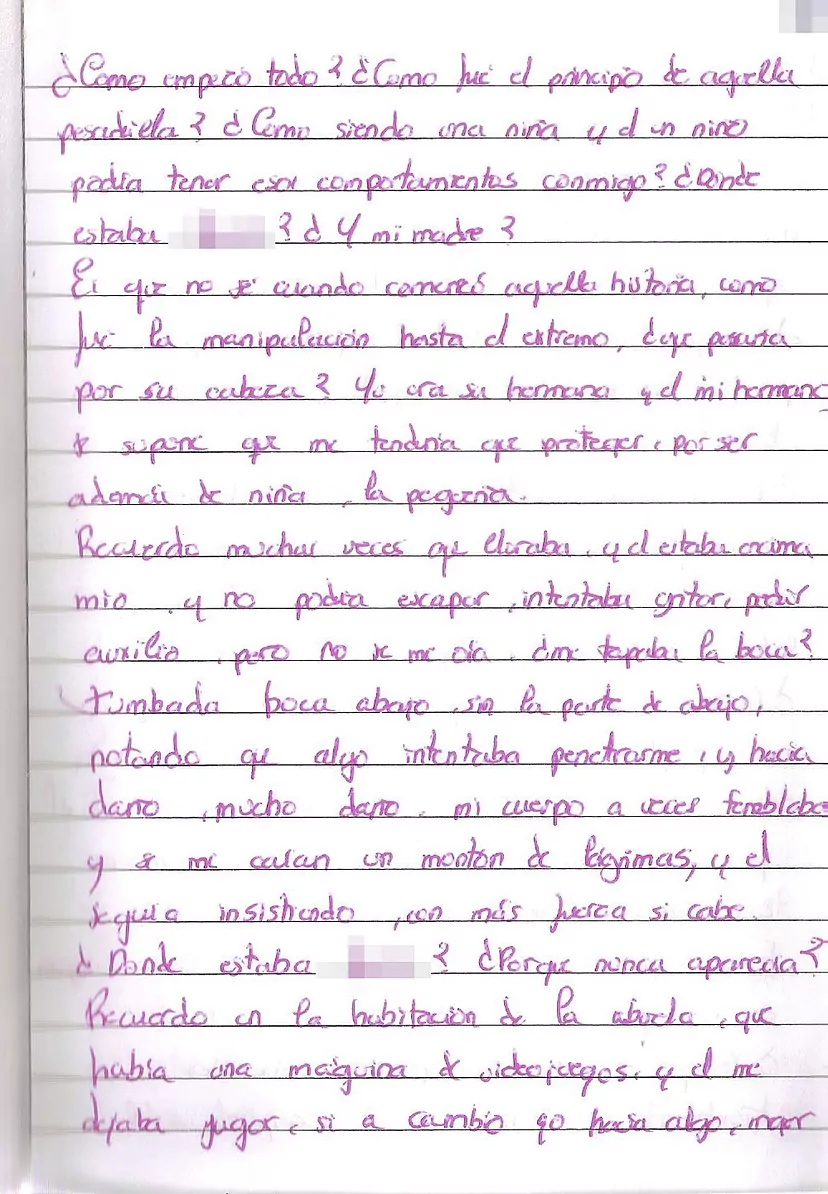 ¿Como empezó todo? ¿Como fué el principio de aquella
pesadiela? ¿Como siendo una niña y el un niño
podia tener esos comportamientos conmigo? ¿Donde
estaba ? ¿Y mi madre?
Es que no sé cuando comenzó aquella historia, como
fué la manipulación hasta el extremo, ¿que pasaria
por su cabeza? Yo era su hermana y el mi hermano
se supone que me tendria que proteger, por ser
además de niña, la pequeña.
Recuerdo muchas veces que lloraba, y el estaba encima
mio, y no podia escapar, intentaba gritar, pedir
auxilio, pero no se me oia. ¿me tapaba la boca?
Tumbada boca abajo, sin la parte de abajo,
notando que algo intentaba penetrarme, y hacia
daño, mucho daño. mi cuerpo a veces temblaba
y se me caian un montón de lágrimas, y el
seguia insistiendo, con más fuerza si cabe.
¿Donde estaba ? ¿Porque nunca aparecia?
Recuerdo en la habitación de la abuela, que
había una maáquina de videojuegos, y el me
dejaba jugar, si a cambio yo hacia algo,